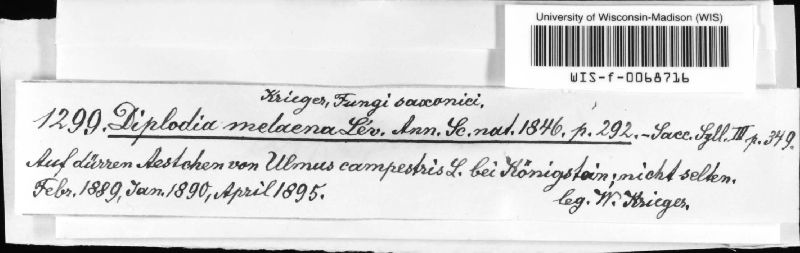 University of Wisconsin-Madison (WIS)
WIS-f-0068716
Krieger, Fungi saxonici.
1299. Diplodia melaena Lév. Ann. Sc. nat. 1846. p. 292. - Sacc. Syll. III p. 349.
Auf dürren Aestchen von Ulmus campestris L. bei Königstein; nicht selten.
Febr. 1889, Jan. 1890, April 1895.
leg. W. Krieger.